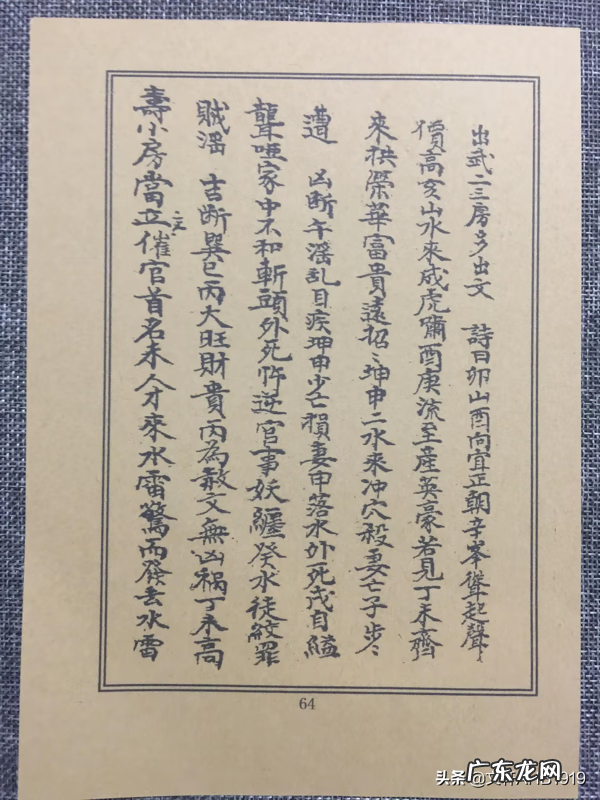 出武二三房多出文 詩曰卯山酉向宜正朝辛峯聳起聲
價高亥山水來成虎躔酉庚流至産英豪若見丁未齊
來拱榮華富貴遠招〻坤申二水來冲穴殺妻亡子步〻
遭 凶断午滛乱目疾坤申少亡損妻申落水外死戌自縊
聾啞家中不和斬頭外死忤逆官事妖纏癸水徒絞罪
賊滛 吉断巽巳丙大旺財貴丙為赦文無凶禍丁未高
壽小房當立玄催官首名未人才來水雷驚而發去水雷
64
头条
1919
广东龙网